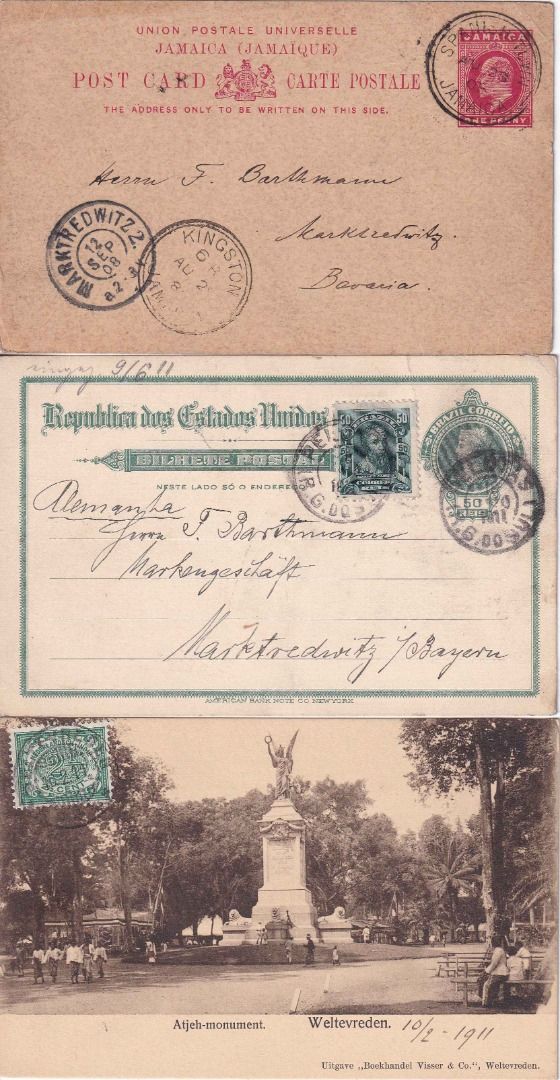 UNION POSTALE UNIVERSELLE
JAMAICA (JAMAÏQUE)
POST CARD CARTE POSTALE
THE ADDRESS ONLY TO BE WRITTEN ON THIS SIDE.
JAMAICA
ONE PENNY
Herrn F. Barthmann
Marktredwitz.
Bavaria.
MARKTREDWITZ 2.
12
SEP
08
KINGSTON
AU 2
9/6 11
Republica dos Estados Unidos
BILHETE POSTAL
NESTE LADO SÓ O ENDEREÇO
50
BRAZIL CORREIO
50
Alemanha
Herrn F. Barthmann
Markengeschäft
Marktredwitz i/Bayern
AMERICAN BANK NOTE CO. NEW YORK
CENT
Atjeh-monument.
Weltevreden.
10/2 - 1911
Uitgave „Boekhandel Visser & Co.", Weltevreden.